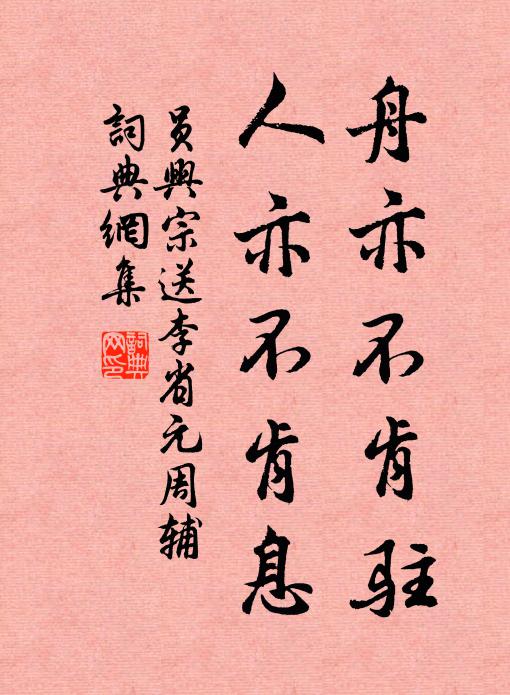 舟亦不肯驻
人亦不肯息
員興宗送李省元周辅
詞典網集
詞典網印